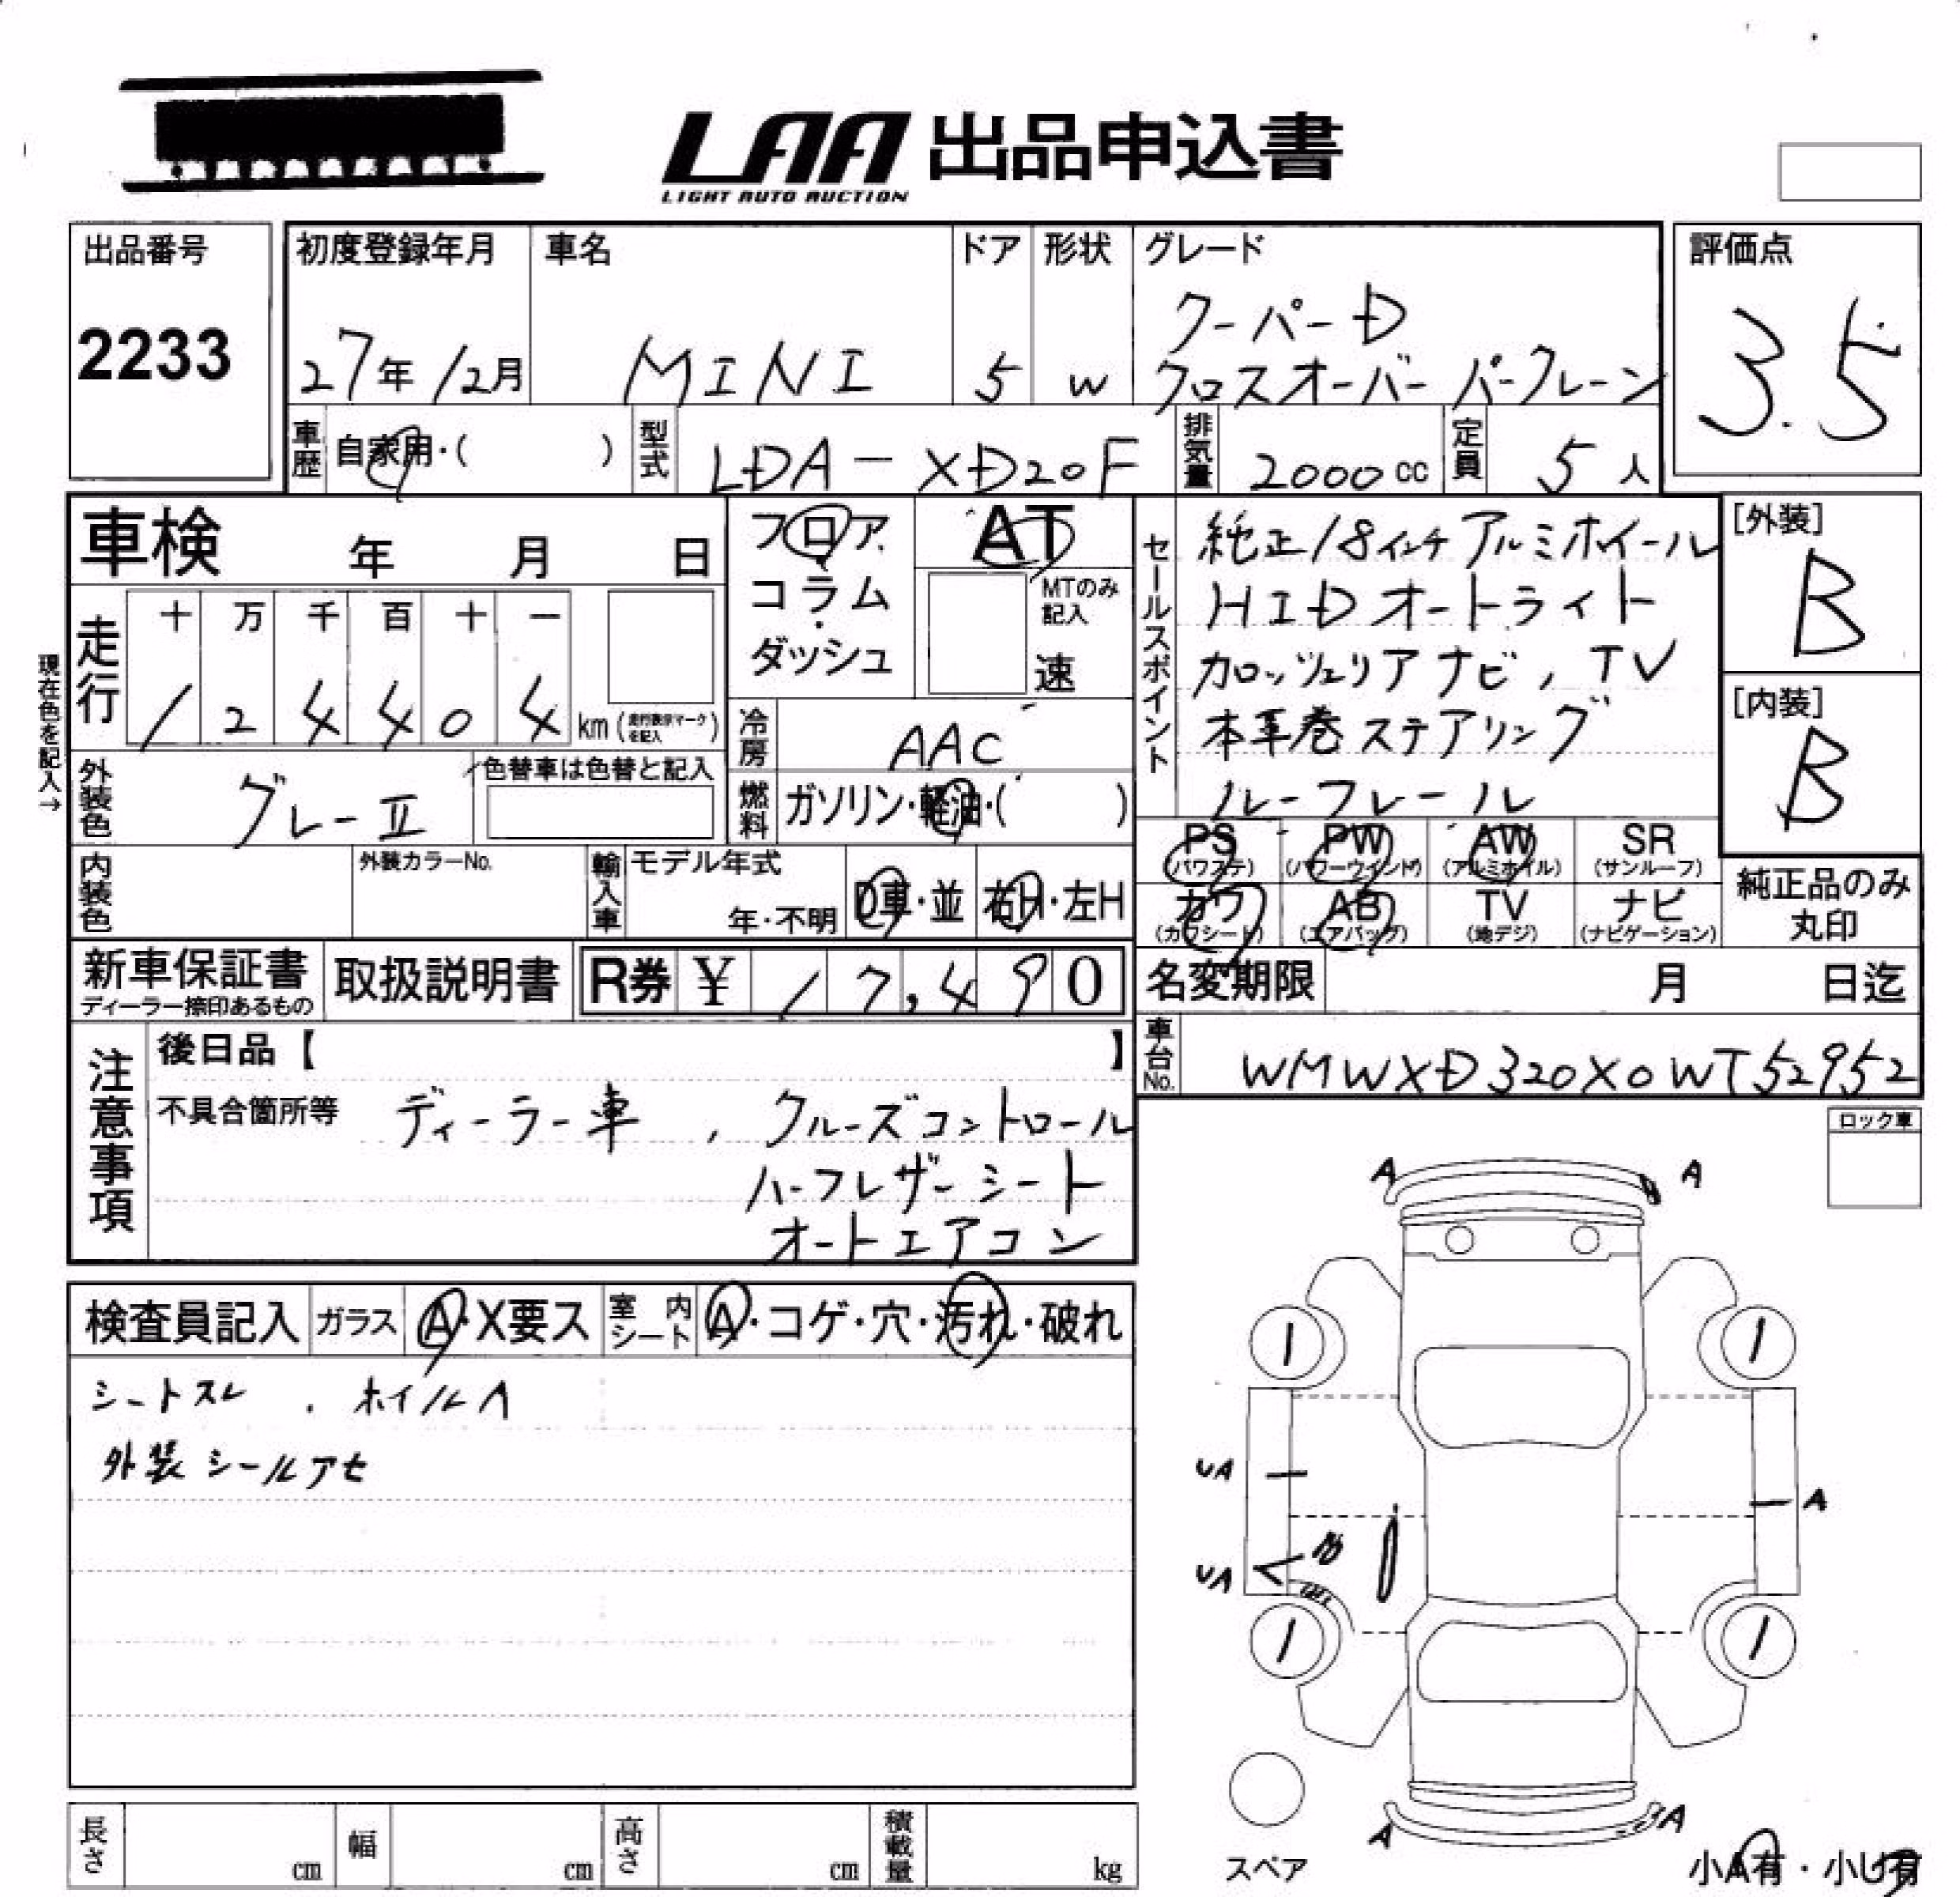 LAA 出品申込書
LIGHT AUTO AUCTION
出品番号
2233
初度登録年月
27年12月
車名
MINI
ドア
5
形状
W
グレード
クーパーD
クロスオーバー パークレーン
評価点
3.5
車歴
自家用・( )
型式
LDA-XD20F
排気量
2000cc
定員
5人
車検 年 月 日
フロア
コラム
ダッシュ
AT
MTのみ記入
速
セールスポイント
純正18インチアルミホイール
HIDオートライト
カロッツェリアナビ, TV
本革巻ステアリング
ルーフレール
[外装]
B
[内装]
B
現在色を記入→
走行
十 万 千 百 十 一
1 2 4 4 0 4 km (走行表示マークを記入)
冷房
AAC
外装色
グレーII
色替車は色替と記入
燃料
ガソリン・軽油・( )
PS (パワステ)
PW (パワーウインド)
AW (アルミホイル)
SR (サンルーフ)
カワ (カワシート)
AB (エアバッグ)
TV (地デジ)
ナビ (ナビゲーション)
純正品のみ丸印
内装色
外装カラーNo.
輸入車
モデル年式
年・不明
D車・並
右H・左H
新車保証書
ディーラー捺印あるもの
取扱説明書
R券 ¥ 17,490
名変期限 月 日迄
車台No.
WMWXD320X0WT52952
注意事項
後日品【 】
不具合箇所等 ディーラー車 , クルーズコントロール
ハーフレザーシート
オートエアコン
ロック車
A A
検査員記入
ガラス
A・X要ス
室内シート
A・コゲ・穴・汚れ・破れ
シートスレ . ホイルA
外装シールアセ
UA
A
UA
A
A
スペア
小A有・小U有
長さ cm
幅 cm
高さ cm
積載量 kg